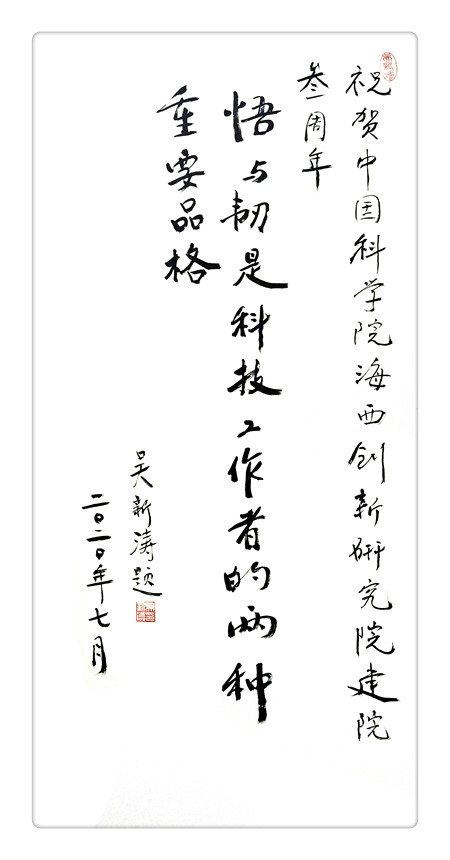 祝贺中国科学院海西创新研究院建院
叁周年
悟与韧是科技工作者的两种
重要品格
吴新涛题
二〇二〇年七月